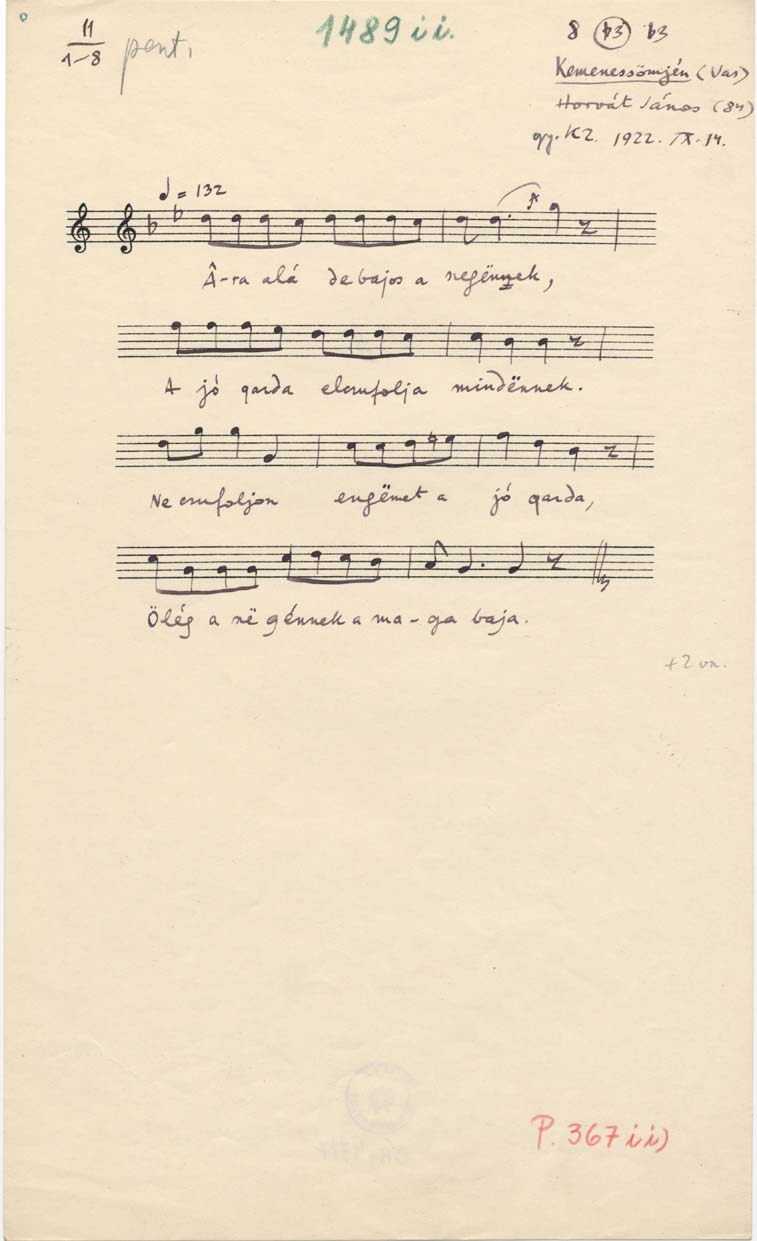 11
1-8
pent.
1489 ii.
8 (b3) b3
Kemenessömjén (Vas)
Horvát János (84)
gy. KZ. 1922. IX. 14.
♩ = 132
Â-ra alá de bajos a szegénnek,
A jó gazda elcsufolja mindënnek.
Ne csufoljon engëmet a jó gazda,
Ölég a szë génnek a ma-ga baja.
+2 vsz.
P. 367 ii)